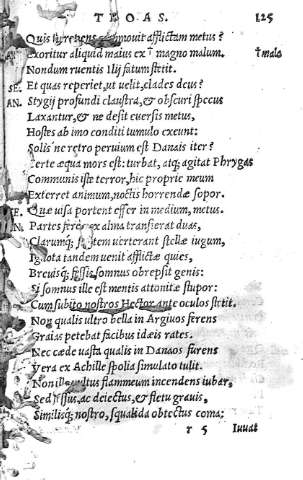 TROAS. 125
Quis te metus ? afflictam
Exoritur aliquid maius ex magno malum. † malo
Nondum ruentis Ilij fatum stetit.
SE. Et quas reperiet, ut uelit, clades deus ?
AN. Stygij profundi claustra, & obscuri specus
Laxantur, & ne desit euersis metus,
Hostes ab imo conditi tumulo exeunt:
Solis ne retro peruium est Danais iter ?
Certe æqua mors est: turbat, atq; agitat Phrygas
Communis iste terror, hic proprie meum
Exterret animum, noctis horrendæ sopor.
SE. Quæ uisa portent effer in medium, metus.
AN. Partes fere ex alma transierat duas,
Clarumq; septem uerterant stellæ iugum,
Ignota tandem uenit afflictæ quies,
Breuisq; fessis somnus obrepsit genis:
Si somnus ille est mentis attonitæ stupor:
Cum subito nostros Hector ante oculos stetit.
Non qualis ultro bella in Argiuos ferens
Graias petebat facibus idæis rates.
Nec cæde uasta qualis in Danaos furens
Vera ex Achille spolia simulato tulit.
Non ille uultus flammeum incendens iubar,
Sed fessus, ac deiectus, & fletu grauis,
Similisq; nostro, squalida obtectus coma;
r 5 Iuuat